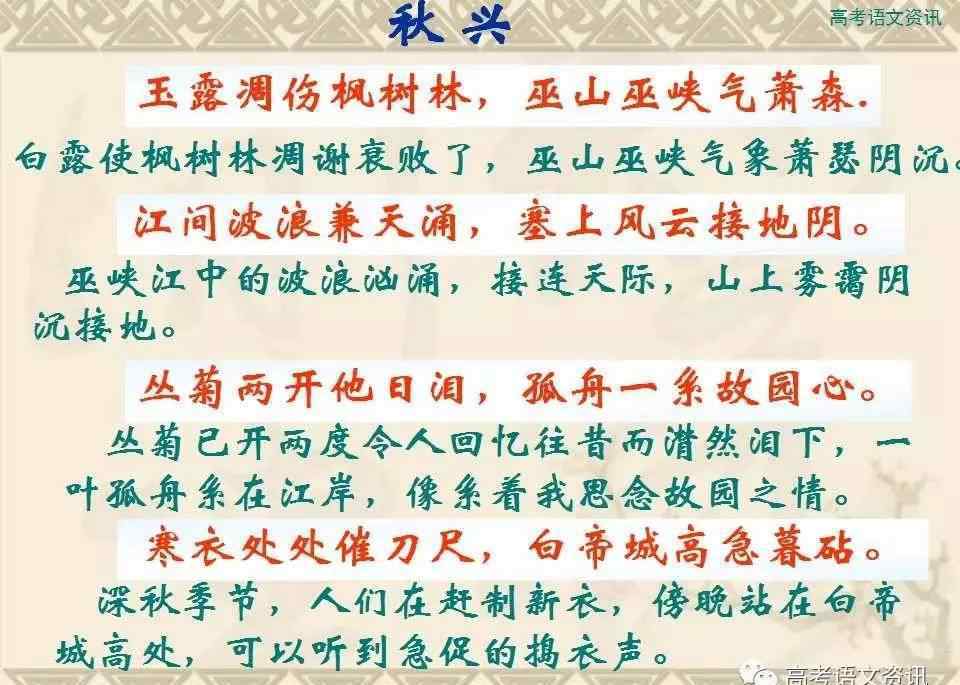 秋兴
高考语文资讯
玉露凋伤枫树林，巫山巫峡气萧森.
白露使枫树林凋谢衰败了，巫山巫峡气象萧瑟阴沉。
江间波浪兼天涌，塞上风云接地阴。
巫峡江中的波浪汹涌，接连天际，山上雾霭阴
沉接地。
丛菊两开他日泪，孤舟一系故园心。
丛菊已开两度令人回忆往昔而潸然泪下，一
叶孤舟系在江岸，像系着我思念故园之情。
寒衣处处催刀尺，白帝城高急暮砧。
深秋季节，人们在赶制新衣，傍晚站在白帝
城高处，可以听到急促的捣衣声。
高考语文资讯